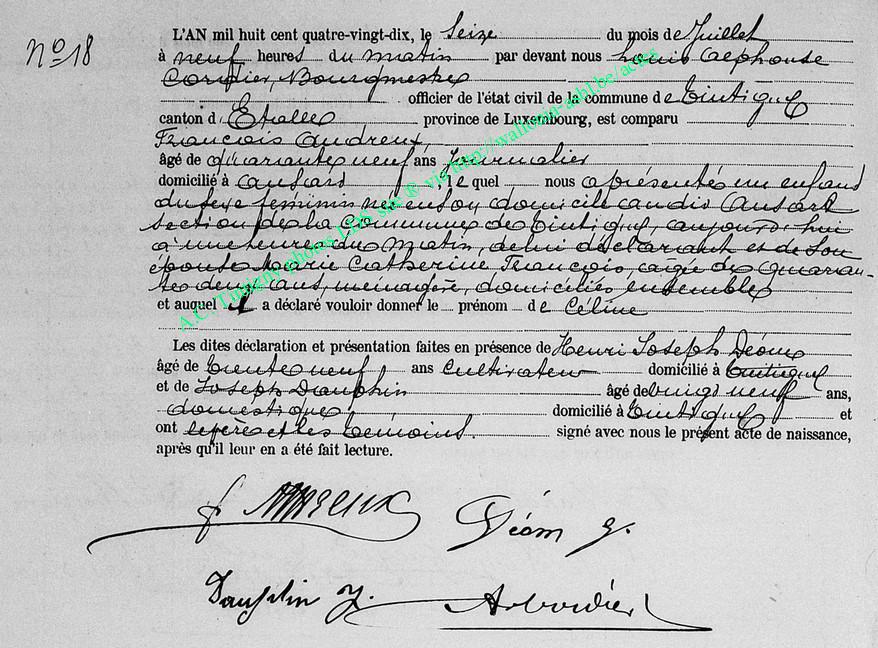 N° 18
L'AN mil huit cent quatre-vingt-dix, le Seize du mois de Juillet
à neuf heures du matin par devant nous Louis Alphonse
Cordier, Bourgmestre
officier de l'état civil de la commune de Tintigny
canton d'Etalle province de Luxembourg, est comparu
François Andreux,
âgé de quarante neuf ans Journalier
domicilié à Ansart, lequel nous a présenté un enfant
du sexe féminin né en son domicile audit Ansart
section de la commune de Tintigny, aujourd'hui
à une heure du matin, de lui déclarant et de Son
épouse Marie Catherine François, agée de quaran-
te deux ans, ménagère, domiciliés ensemble
et auquel il a déclaré vouloir donner le prénom de Céline
Les dites déclaration et présentation faites en présence de Henri Joseph Déom
âgé de trente neuf ans Cultivateur domicilié à Tintigny
et de Joseph Dauphin âgé de vingt neuf ans,
domestique domicilié à Tintigny et
ont le père et les témoins signé avec nous le présent acte de naissance,
après qu'il leur en a été fait lecture.
f Andreux
Déom
Dauphin J.
A. Cordier
A.C. Tintigny photos LDS site ® via http://wallonia-asbl.be/actes